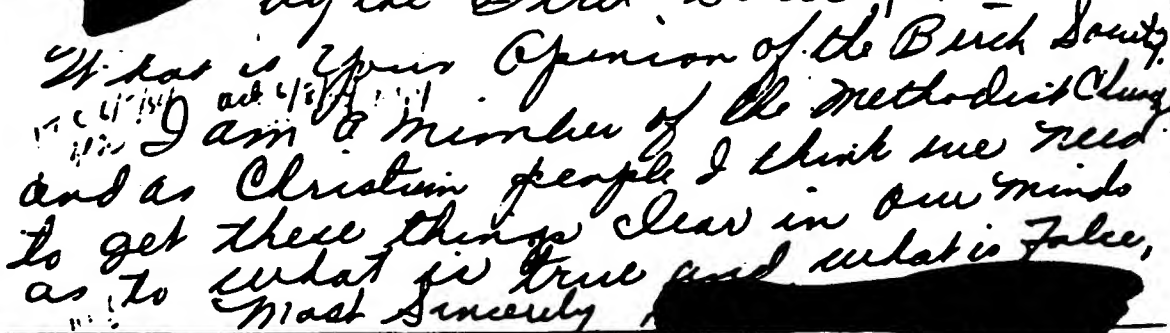 by the Birch
What is Your Opinion of the Birch Society.
I am a member of the Methodist Church
and as Christian people I think we need
to get these things clear in our minds
as to what is true and what is False,
Most Sincerely